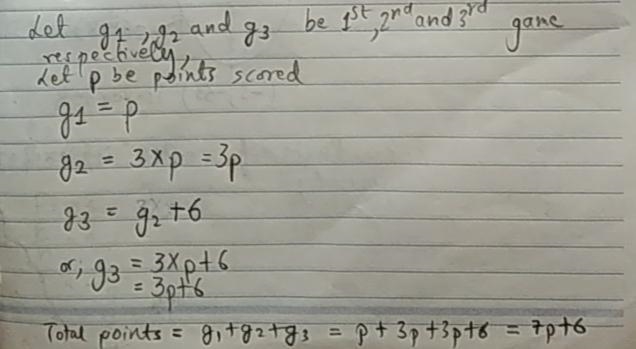 Let g1, g2 and g3 be 1st, 2nd and 3rd game
respectively,
Let p be points scored
g1 = p
g2 = 3×p = 3p
g3 = g2 + 6
or, g3 = 3×p+6
= 3p+6
Total points = g1+g2+g3 = p+3p+3p+6 = 7p+6